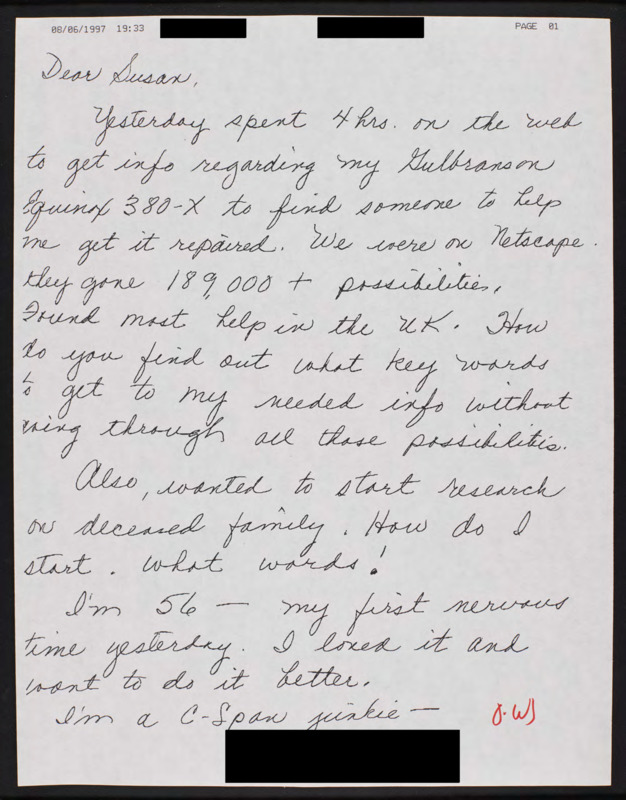 08/06/1997 19:33 PAGE 01
Dear Susan,
Yesterday spent 4 hrs. on the web
to get info regarding my Gulbranson
Equinox 380-X to find someone to help
me get it repaired. We were on Netscape.
they gone 189,000 + possibilities.
Found most help in the UK. How
do you find out what key words
to get to my needed info without
going through all those possibilities.
Also, wanted to start research
on deceased family. How do I
start. What words!
I'm 56 — my first nervous
time yesterday. I loved it and
want to do it better.
I'm a C-Span junkie —